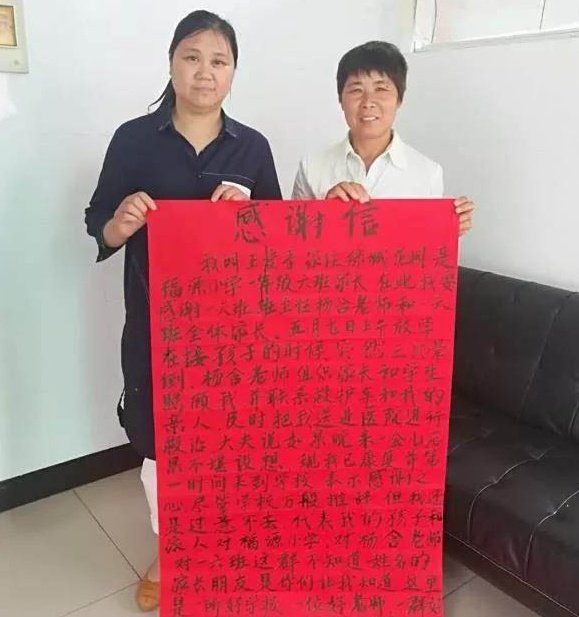 感谢信
我叫王 香 家住绿城花园是
福源小学一年级六班家长在此我要
感谢一六班班主任杨含老师和一六
班全体家长、五月七日上午放学
在接孩子的时候突然三次晕
倒、杨含老师组织家长和学生
照顾我并联系救护车和我的
亲人、及时把我送进医院进行
救治大夫说如果晚来一会儿后
果不堪设想、现我已康复并第
一时间来到学校表示感谢之
心尽管学校万般推辞但我还
是过意不去代表我的孩子和
家人对福源小学、对杨含老师
对一六班这群不知道姓名的
家长朋友是你们让我知道这里
是一所好学校一位好老师、一群好